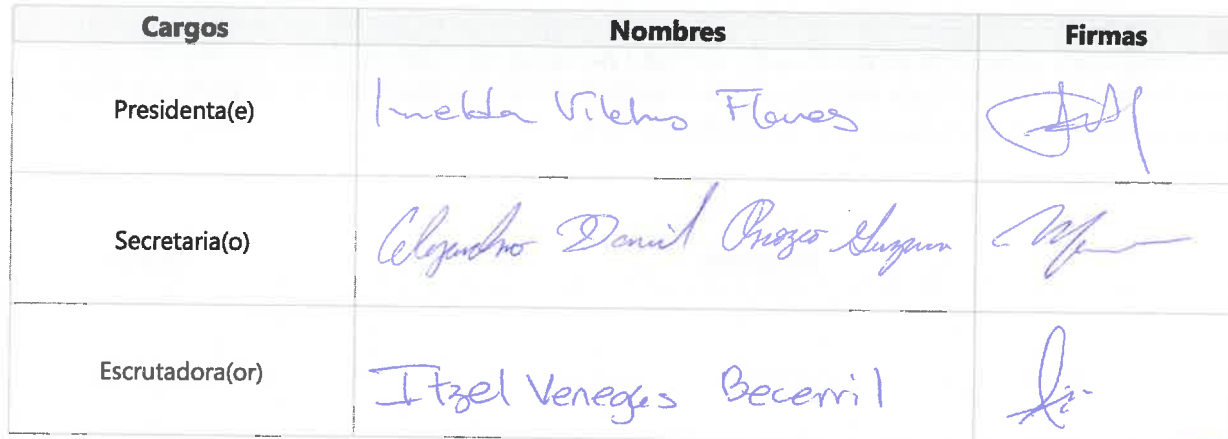 Cargos Nombres Firmas
Presidenta(e) Imelda Vilchis Flores
Secretaria(o) Alejandro Daniel Orozco Guzman
Escrutadora(or) Itzel Venegas Becerril